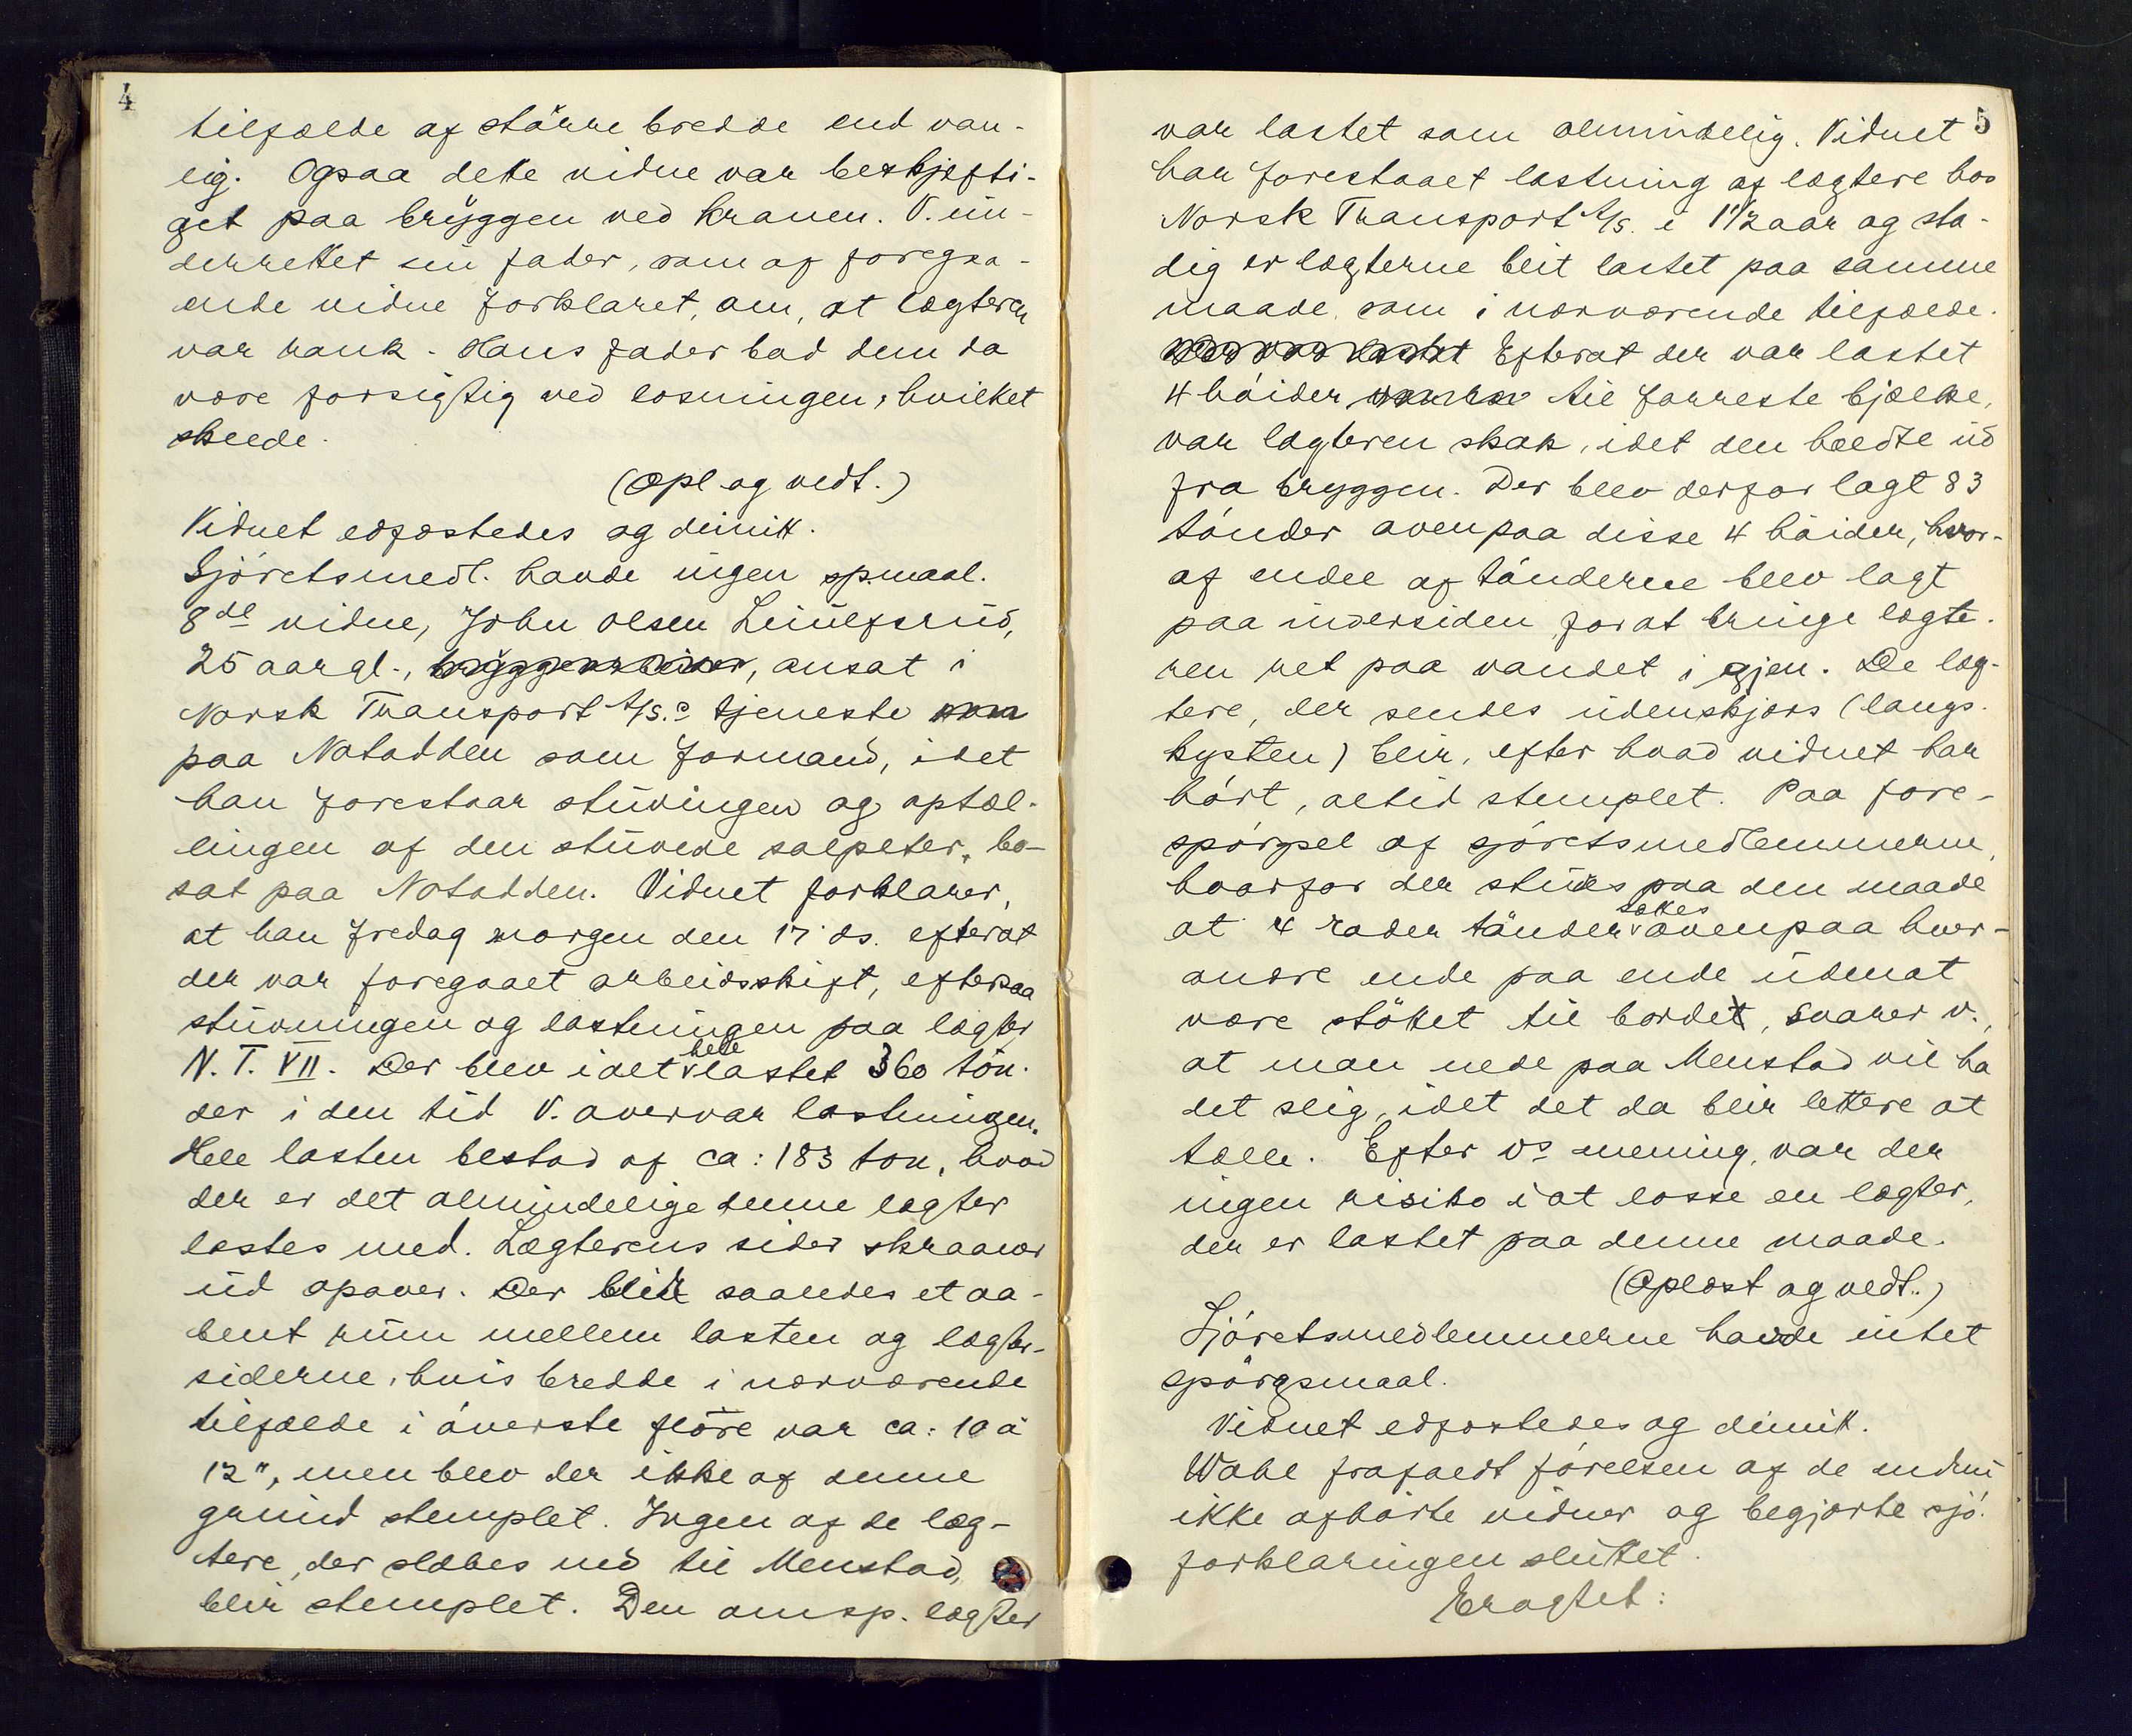 4
tilfælde af större bredde end van-
lig. Ogsaa dette vidne var beskjefti-
get paa bryggen ved kranen. V. un-
derrettet sin fader, som af foregaa-
ende vidne forklaret, om, at lægteren
var rank. Hans fader bad dem da
være forsigtig ved losningen, hvilket
skeede.
(Opl. og vedt.)
Vidnet edfæstedes og dimitt.
Sjöretsmedl. havde ingen spmaal.
8de vidne, John Olsen Leinulfsrud,
25 aar gl., bryggearbeider, ansat i
Norsk Transport A/S.s tjeneste som
paa Notodden som formand, idet
han forestaar stuvingen og optæl-
lingen af den stuvede salpeter, bo-
sat paa Notodden. Vidnet forklarer,
at han fredag morgen den 17 ds. efterat
der var foregaaet arbeidsskift, eftersaa
stuvningen og lastningen paa lægter
N. T. VII. Der blev i det hele lastet 360 tön-
der i den tid V. overvar lastningen.
Hele lasten bestod af ca: 183 ton, hvad
der er det almindelige denne lægter
lastes med. Lægterens sider skraaner
ud opover. Der blir saaledes et aa-
bent rum mellem lasten og lægter-
siderne, hvis bredde i nærværende
tilfælde i överste flöre var ca: 10 à
12", men blev der ikke af denne
grund stemplet. Ingen af de læg-
tere, der slæbes ned til Menstad,
blir stemplet. Den omsp. lægter
5
var lastet som almindelig. Vidnet
har forestaaet lastning af lægtere hos
Norsk Transport A/S. i 1 1/2 aar og sta-
dig er lægterne blit lastet paa samme
maade som i nærværende tilfælde.
Der var lastet Efterat der var lastet
4 höider til forreste bjælke,
var lægteren skak, idet den heldte ud
fra bryggen. Der blev derfor lagt 83
tönder ovenpaa disse 4 höider, hvor-
af endel af tönderne blev lagt
paa indersiden for at bringe lægte-
ren ret paa vandet i gjen. De læg-
tere, der sendes udenskjærs (langs
kysten) blir, efter hvad vidnet har
hört, altid stemplet. Paa fore-
spörgsel af sjöretsmedlemmerne,
hvorfor der stuves paa den maade
at 4 rader tönder sættes ovenpaa hver-
andre ende paa ende udenat
være stöttet til bordet, svarer v.,
at man nede paa Menstad vil ha
det slig, idet det da blir lettere at
tælle. Efter v's mening, var der
ingen risiko i at losse en lægter,
der er lastet paa denne maade.
(Oplæst og vedt.)
Sjöretsmedlemmerne havde intet
spörgsmaal.
Vidnet edfæstedes og dimitt.
Wahl frafaldt förelsen af de endnu
ikke afhörte vidner og begjærte sjö-
forklaringen sluttet.
Eragtet: